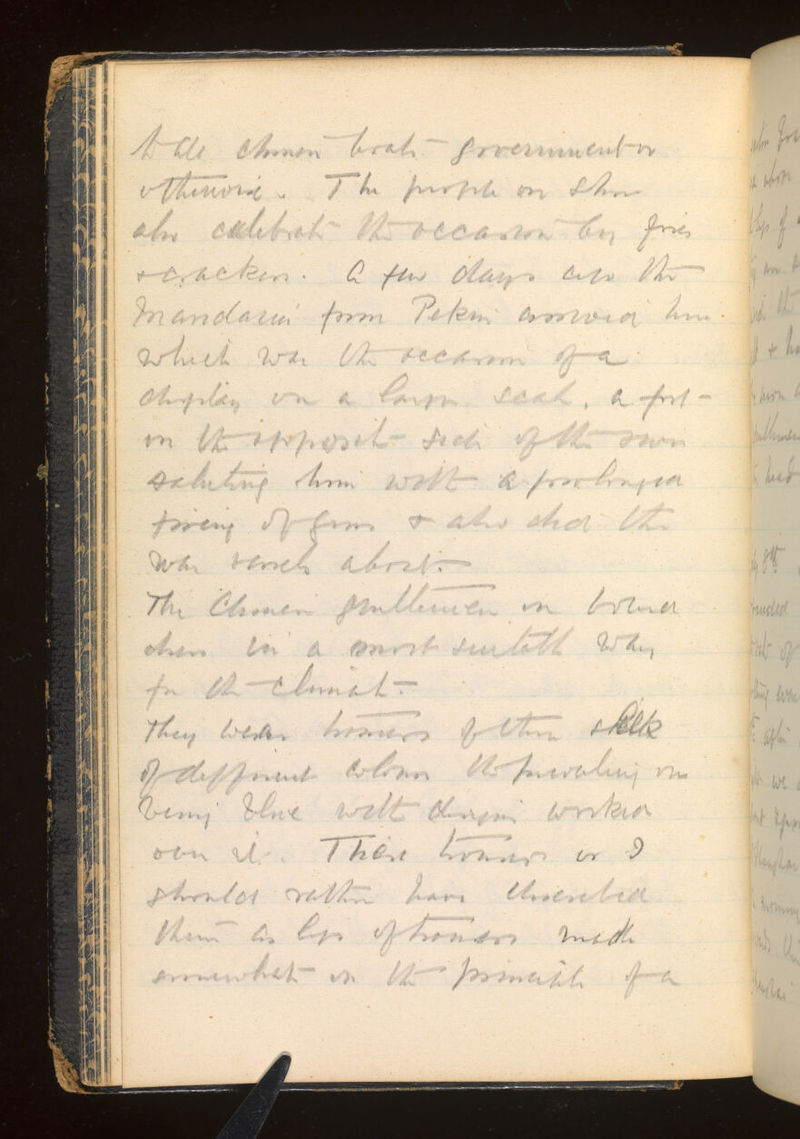 to all chinese boats government or
otherwise. The people on shore
also celebrate the occasion by fires
+ crackers. A few days ago the
Mandarin from Pekin arrived here
which was the occasion of a
display on a large scale, a fort
on the opposite side of the river
saluting him with a prolonged
firing of guns & also did the
war vessels about.
The Chinese gentlemen on board
dress in a most suitable way
for the climate.
They wear trousers of thin silk
of different colours the prevailing one
being blue with designs worked
over it. These trousers or I
should rather have described
them as legs of trousers made
somewhat on the principle of a